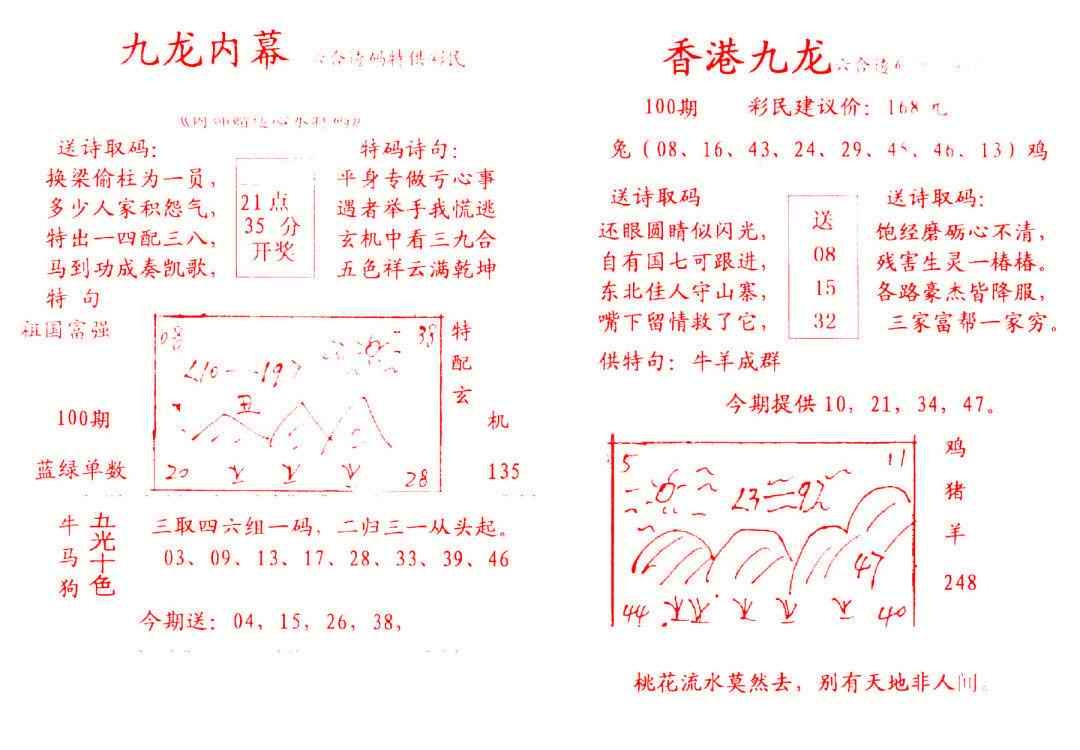 九龙内幕 六合透码特供彩民
送诗取码：
换梁偷柱为一员，
多少人家积怨气，
特出一四配三八，
马到功成奏凯歌，
特 句
祖国富强
21点
35 分
开奖
特码诗句：
平身专做亏心事
遇者举手我慌逃
玄机中看三九合
五色祥云满乾坤
08
33
210-197
丑
20
28
特配玄
机
100期
蓝绿单数
135
牛马狗
五光十色
三取四六组一码，二归三一从头起。
03、09、13、17、28、33、39、46
今期送：04，15，26，38，
香港九龙 六合透
100期 彩民建议价：168元
兔（08、16、43、24、29、48、46、13）鸡
送诗取码
还眼圆睛似闪光，
自有国七可跟进，
东北佳人守山寨，
嘴下留情救了它，
送
08
15
32
送诗取码：
饱经磨砺心不清，
残害生灵一椿椿。
各路豪杰皆降服，
三家富帮一家穷。
供特句：牛羊成群
今期提供10，21，34，47。
5
11
23=92
47
44
40
鸡
猪
羊
248
桃花流水莫然去，别有天地非人间。